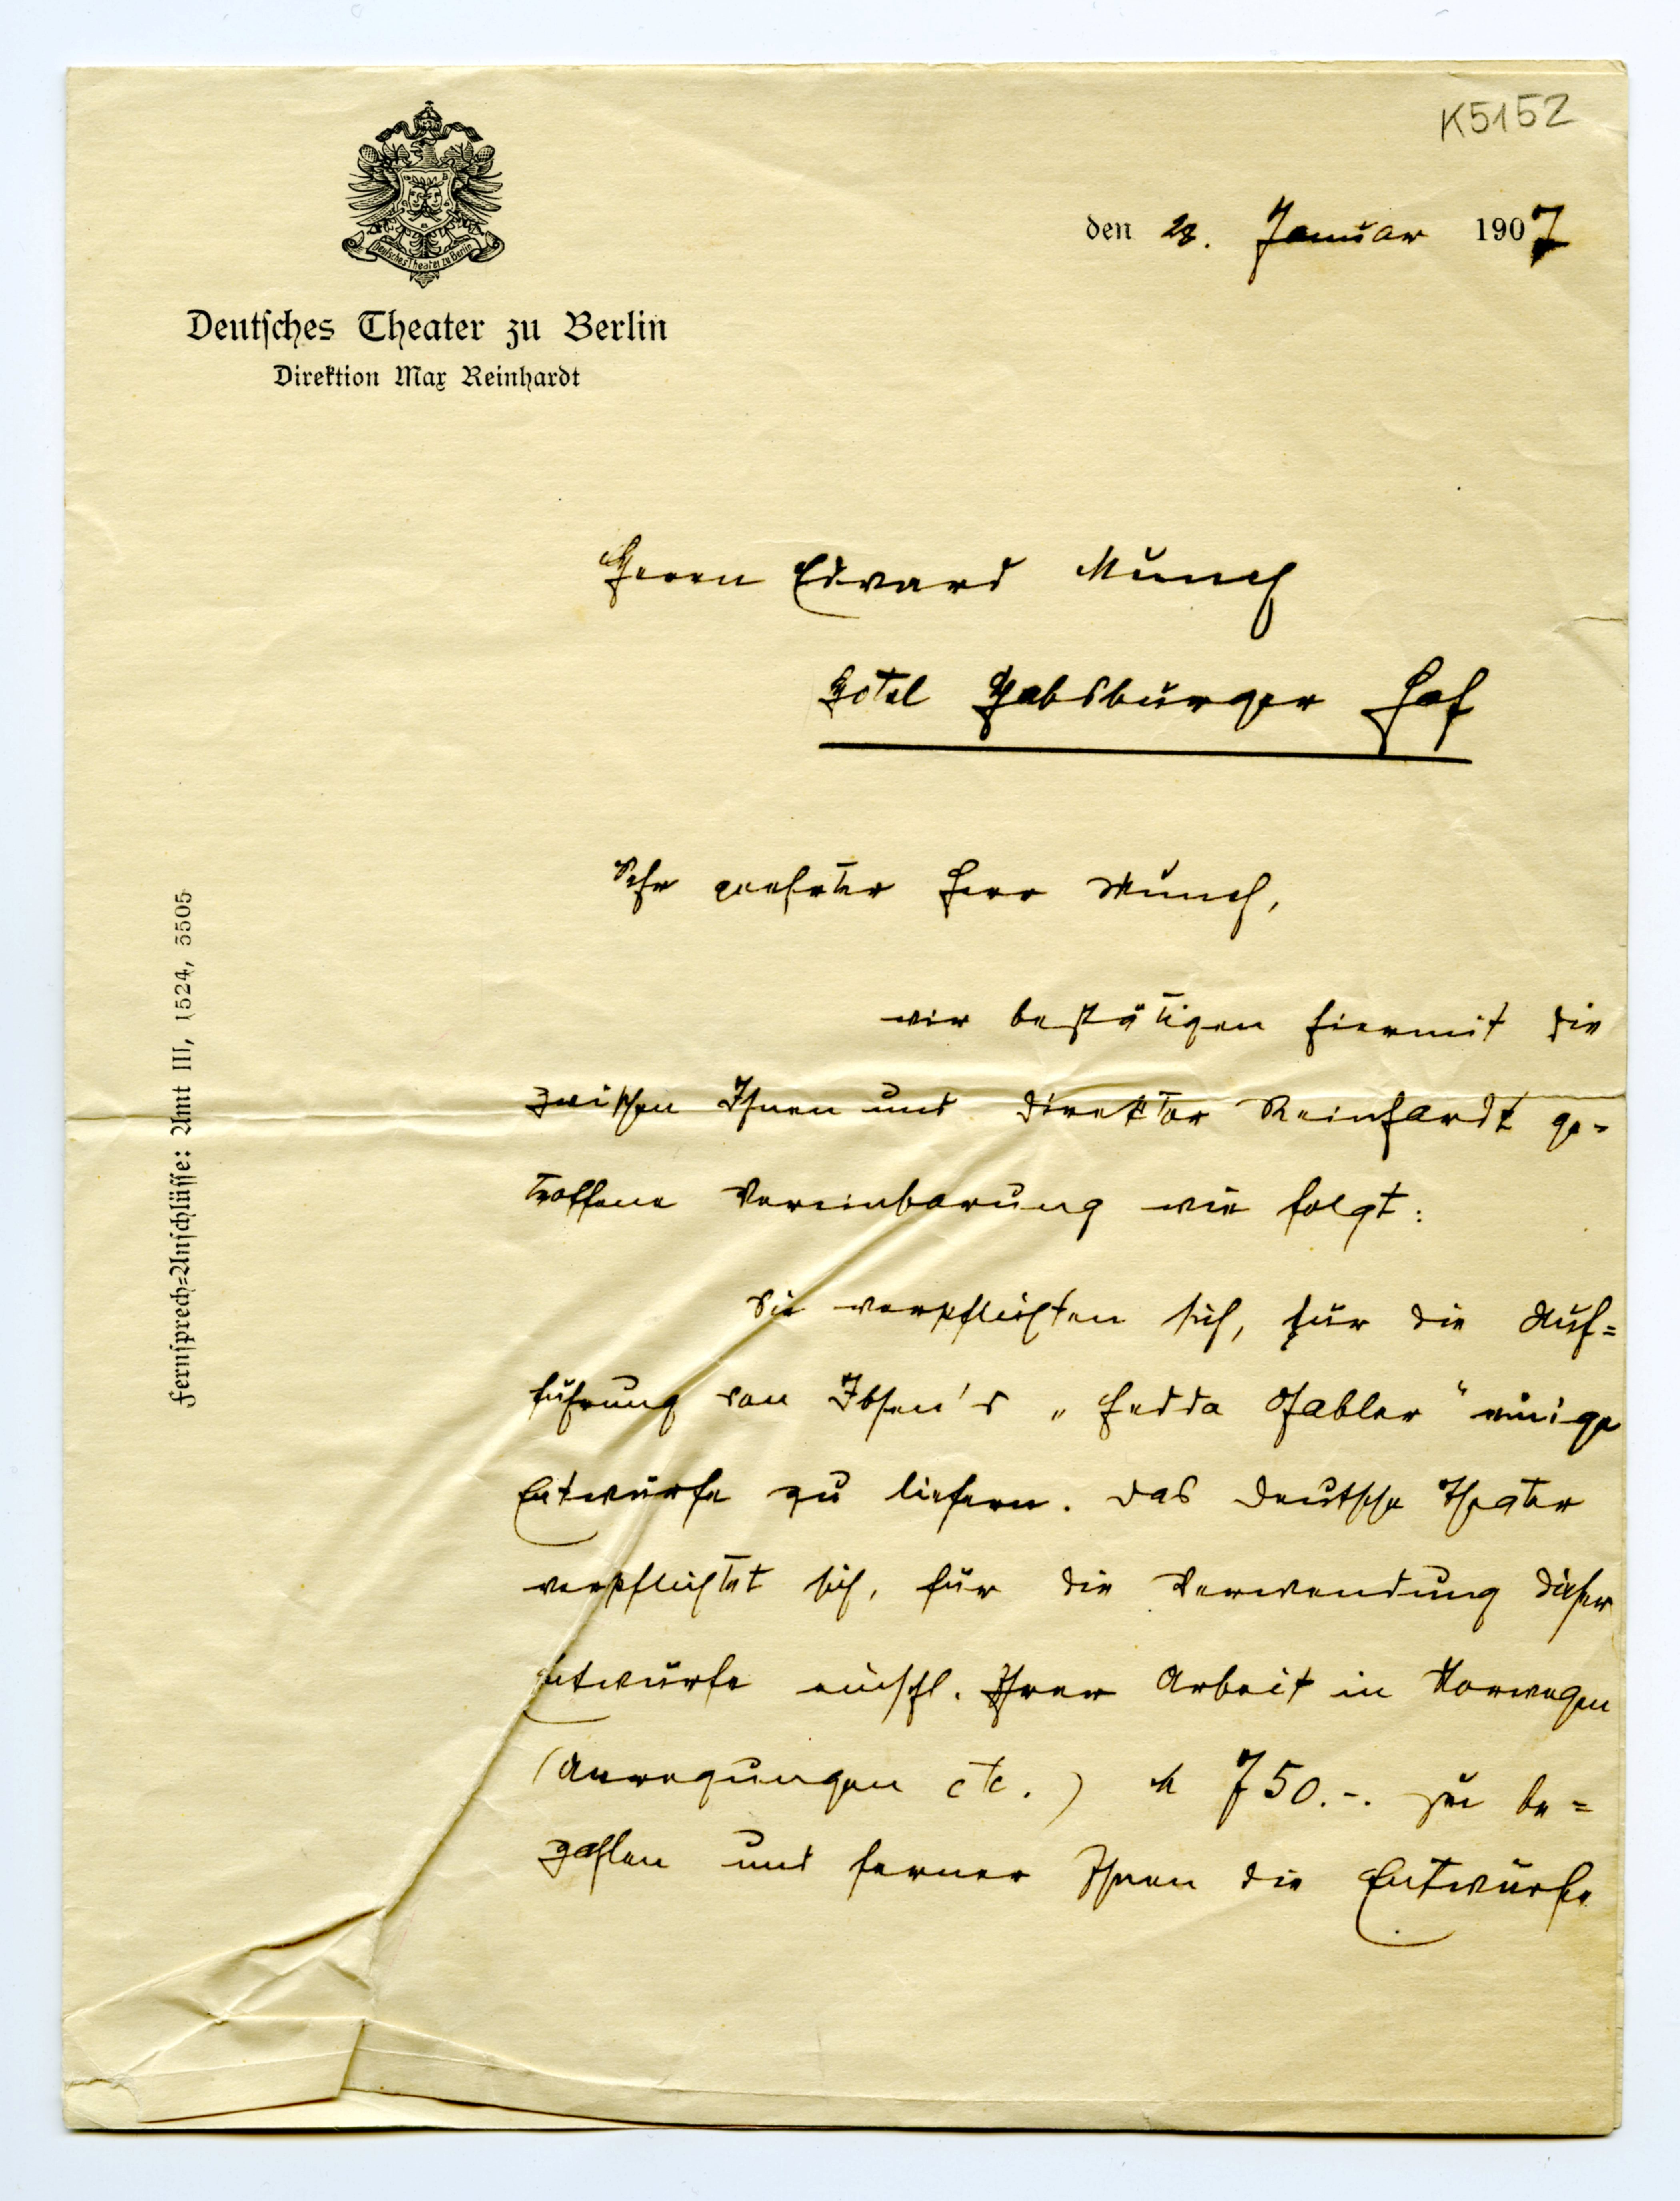 K5152
Deutsches Theater zu Berlin
den 28. Januar 1907
Deutsches Theater zu Berlin
Direktion Max Reinhardt
Herrn Edvard Munch
Hotel Habsburger Hof
Sehr geehrter Herr Munch,
wir bestätigen hiermit die
zwischen Ihnen und Direktor Reinhardt ge=
troffene Vereinbarung wie folgt:
Sie verpflichten sich, für die Auf=
führung von Ibsen's „Hedda Gabler“ einige
Entwürfe zu liefern. Das Deutsche Theater
verpflichtet sich, für die Verwendung dieser
Entwürfe einschl. Ihrer Arbeit in Norwegen
(Anregungen etc.) M 750.-. zu be=
zahlen und ferner Ihnen die Entwürfe
Fernsprech=Anschlüsse: Amt III, 1524, 5505